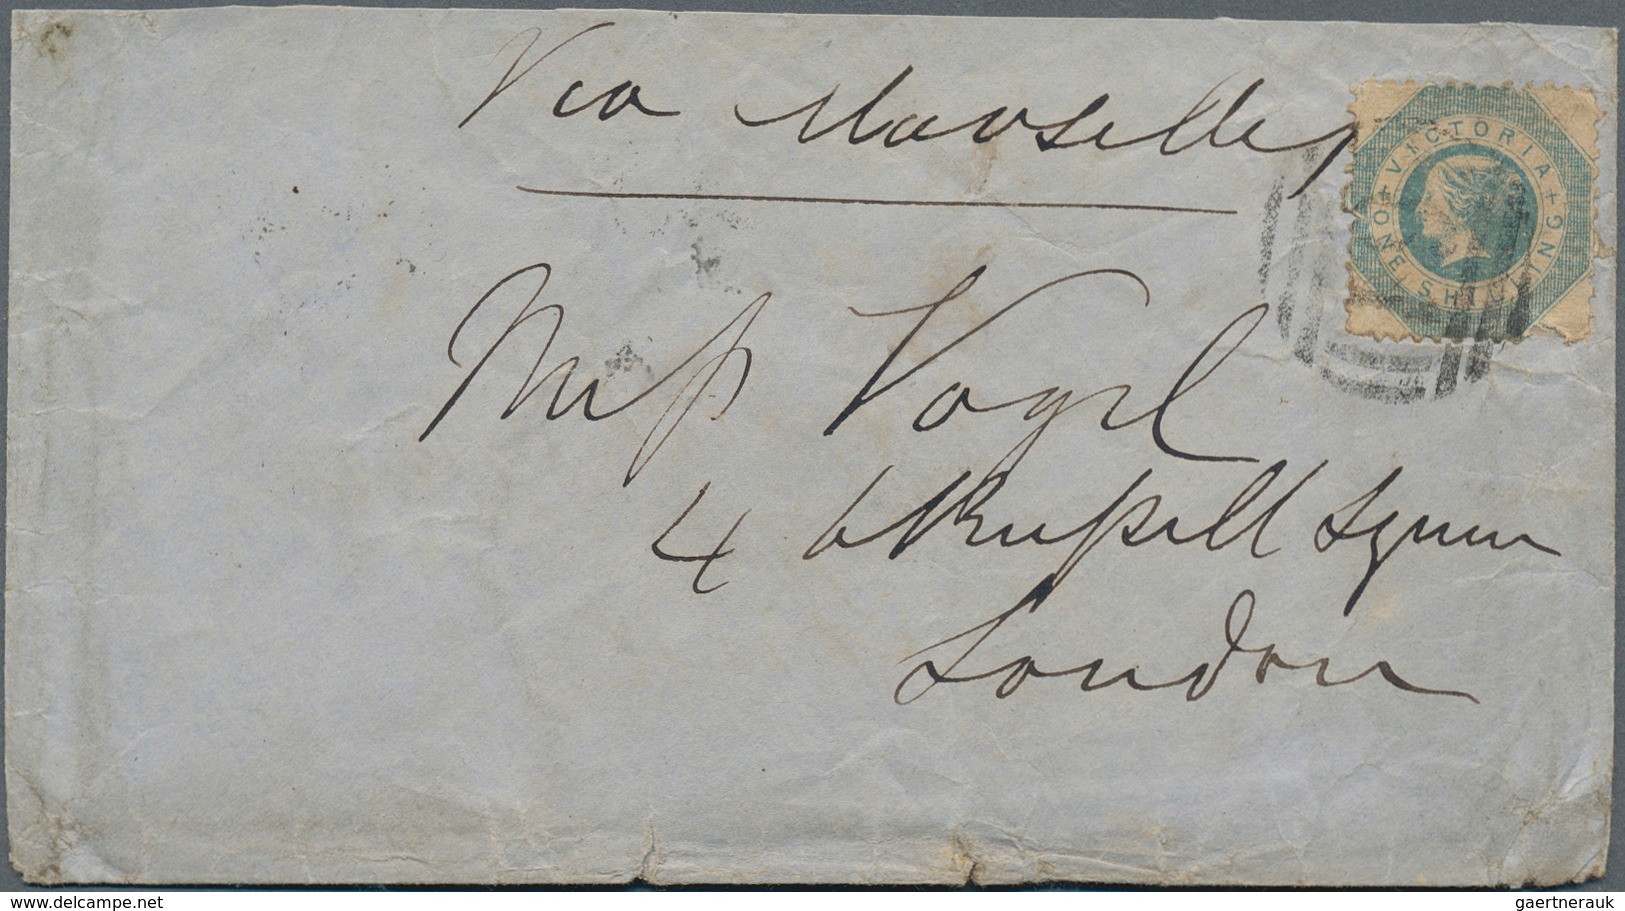 Via Marseilles
+ VICTORIA +
ONE SHILLING
Miss Vogel
4 Russell Square
London
delcampe.net
gaertnerauk